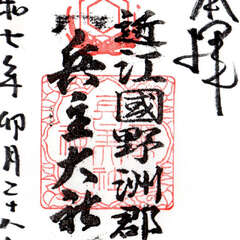 奉拝
近江國野洲郡
兵主大社
和七年卯月二十八